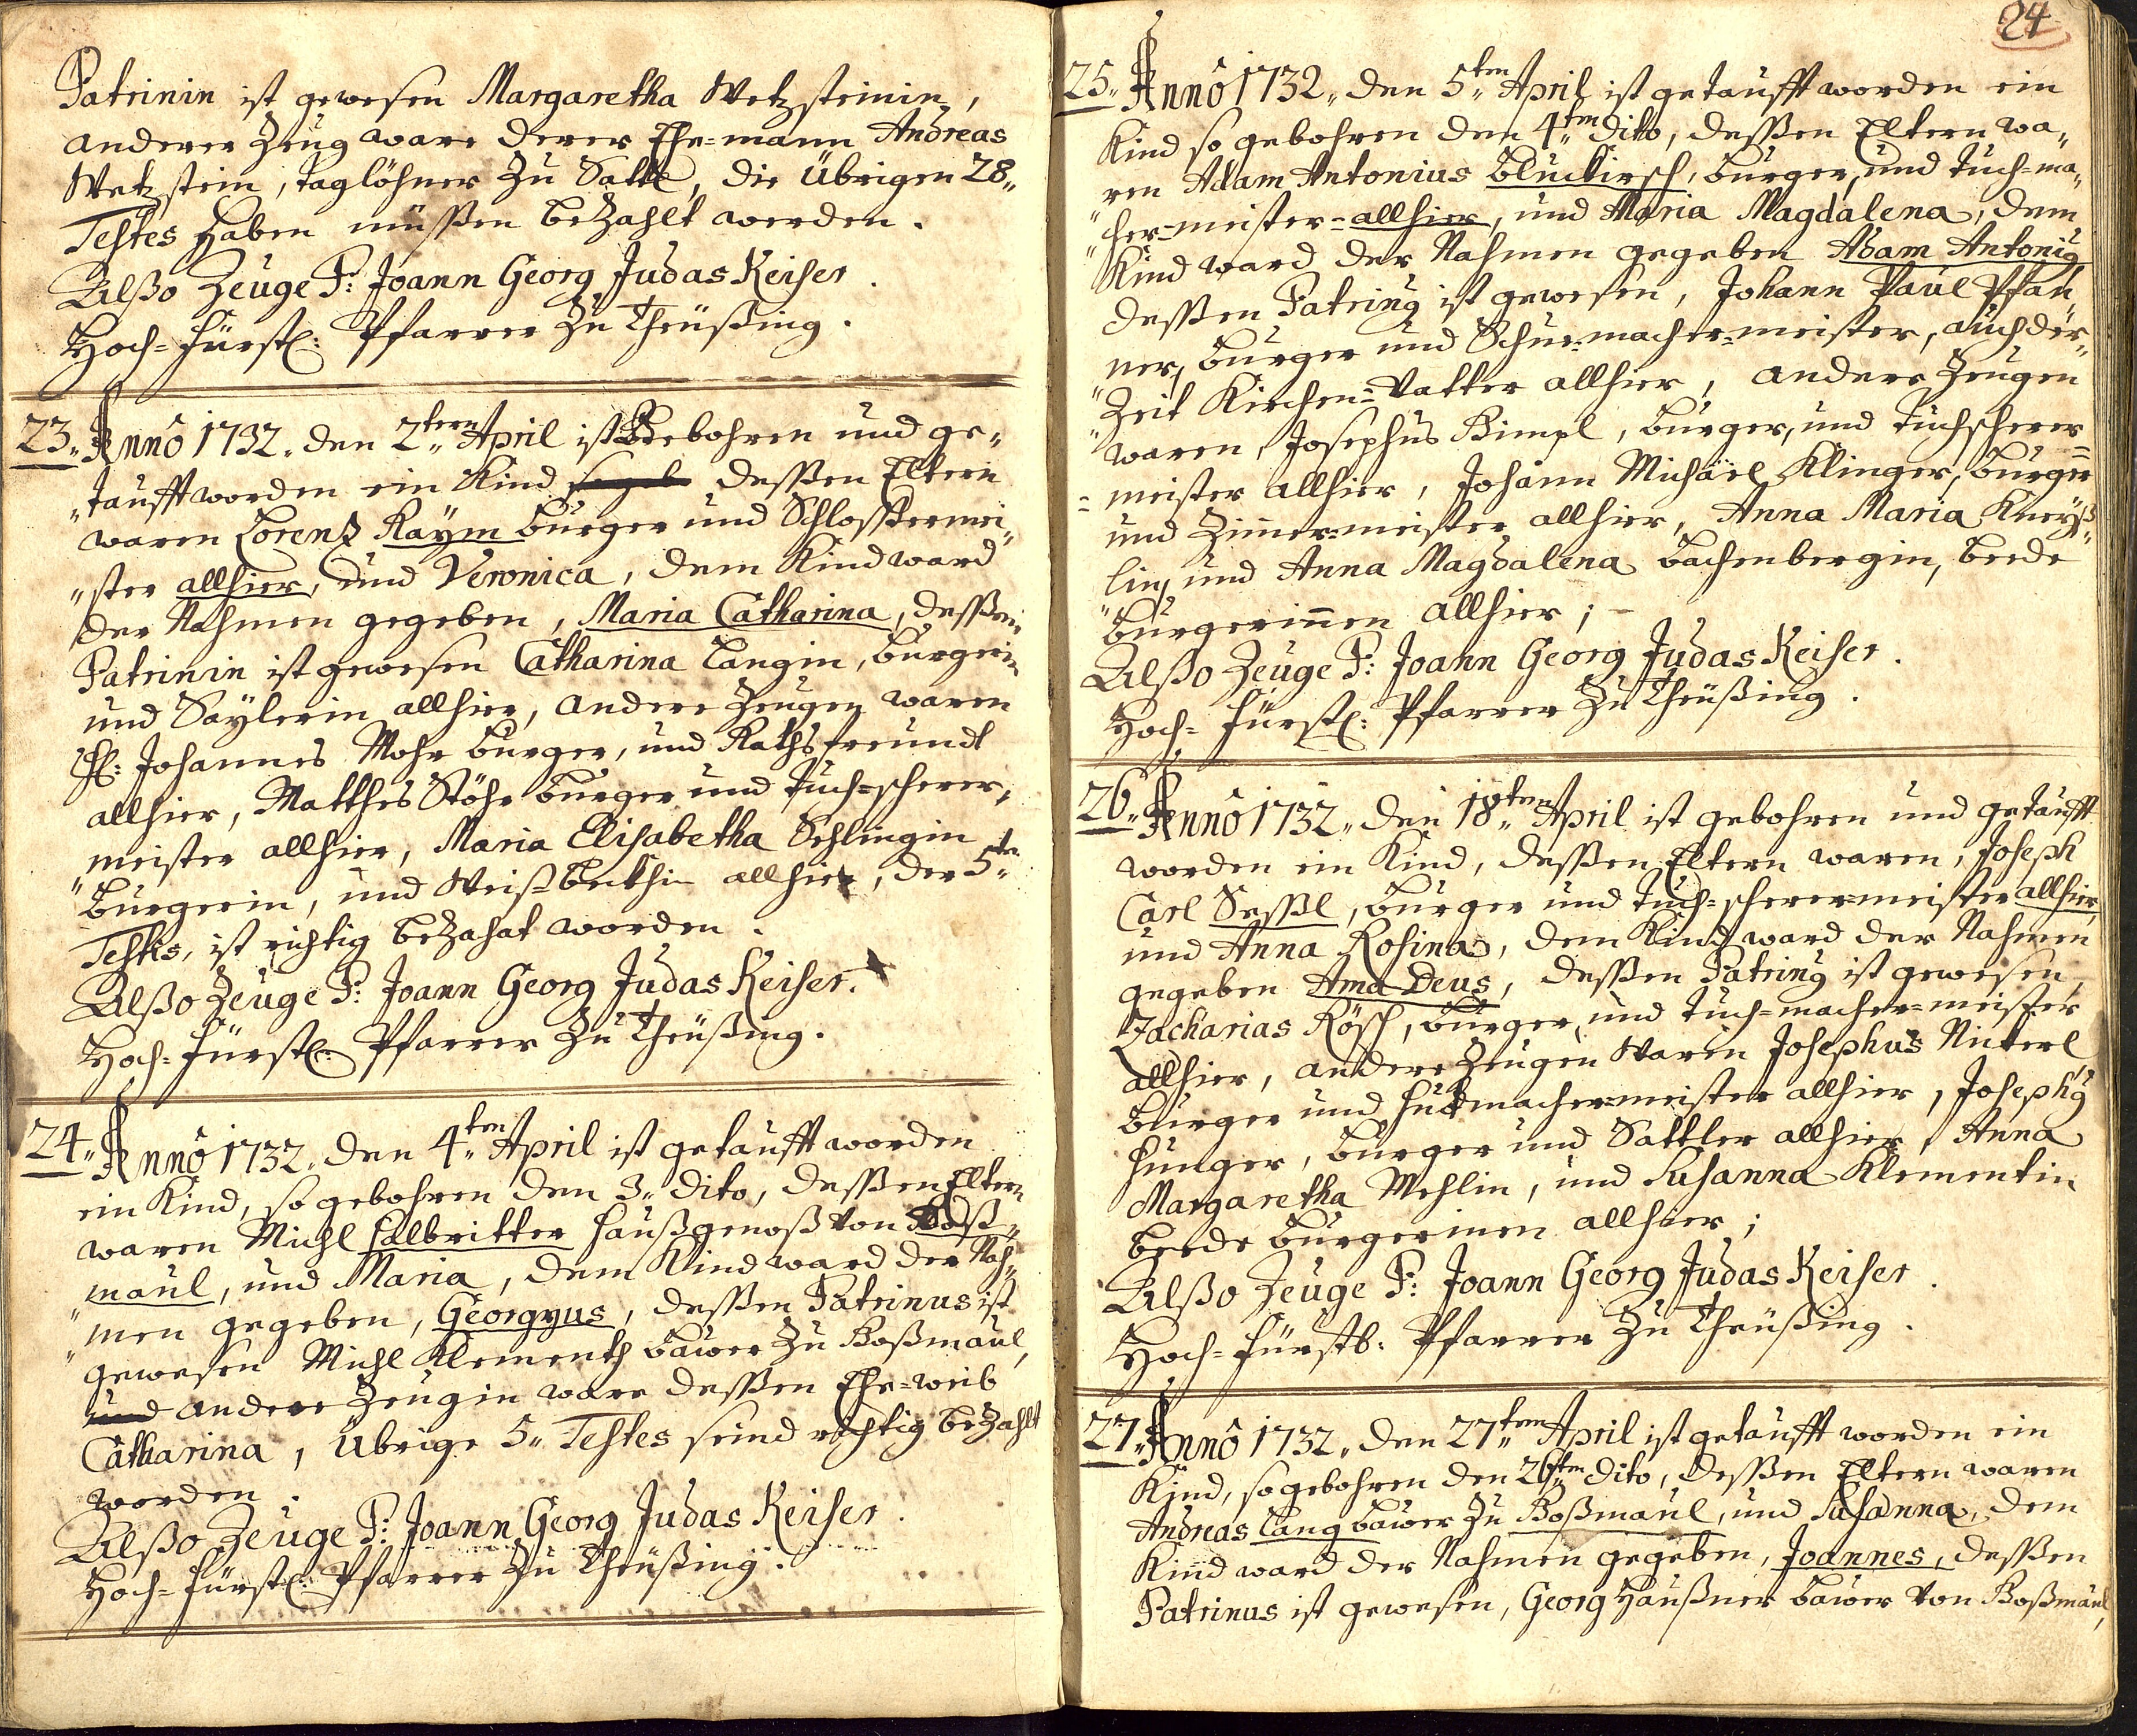 Patrinin ist gewesen Margaretha Wetzsteinin,
anderer Zeug ware derer Ehe=mann Andreas
Wetzstein, taglöhner zu Sattl, die übrigen 28„
Testes haben müssen bezahlt werden.
Alßo Zeuge P: Joann Georg Judas Keiser.
Hoch=fürstl: Pfarrer zu Theüßing.
23„ Anno 1732„ den 2„ten April ist Gebohren und ge„
„taufft worden ein Kind dessen Eltern
waren Lorenz Kaÿm burger und Schlossermei„
„ster allhier, und Veronica, dem Kind ward
der Nahmen gegeben, Maria Catharina, dessen
Patrinin ist gewesen Catharina Langin, burgerin
und Saÿlerin allhier, andere Zeugen waren
H: Johannes Mohr burger, und Rathsfreundt
allhier, Matthes Stöhr burger und tuch=scherer„
„meister allhier, Maria Elisabetha Schlingin
burgerin, und Weißbeckhin allhier, der 5„te
Testis, ist richtig bezahat worden.
Alßo Zeuge P: Joann Georg Judas Keiser.
Hoch=fürstl: Pfarrer zu Theüßing.
24„ Anno 1732„ den 4„ten April ist getaufft worden
ein Kind, so gebohren den 3„ dito, dessen Eltern
waren Michl Halbritter Haußgenoß von Boß„
„maul, und Maria, dem Kind ward der Nah„
„men gegeben, Georgyus, dessen Patrinus ist
gewesen Michl Klementh bawer zu Boßmaul,
und andere Zeugin ware dessen Ehe=weib
Catharina, übrige 5„ Testes seind richtig bezahlt
worden.
Alßo Zeuge P: Joann Georg Judas Keiser.
Hoch=fürstl: Pfarrer zu Theüßing.
24
25„ Anno 1732„ den 5„ten April ist getaufft worden ein
Kind so gebohren den 4„ten dito, dessen Eltern wa„
ren Adam Antonius Bluckirsch, burger, und tuch=ma„
„cher=meister=allhier, und Maria Magdalena, dem
Kind ward der Nahmen gegeben Adam Antonig
dessen Patring ist gewesen, Johann Paul Pfan„
„ner, burger und Schue=macher=meister, auch der„
„Zeit Kirchen=Vatter allhier, andere Zeugen
waren, Josephus Bimpl, burger, und tuchscherer=
=meister allhier, Johann Michäel Klinger, burger
und Zimer=meister allhier, Anna Maria Kneyß„
lin, und Anna Magdalena Bachenbergin, beede
burgerinen allhier; -
Alßo Zeuge P: Joann Georg Judas Keiser.
Hoch=fürstl: Pfarrer zu Theüßing.
26„ Anno 1732„ den 18„ten April ist gebohren und getaufft
worden ein Kind, dessen Eltern waren, Joseph
Carl Sessl, burger und tuch=scherer=meister allhier,
und Anna Rosina, dem Kind ward der Nahmen
gegeben Ama Deus, dessen Patring ist gewesen,
Zacharias Rösch, burger, und tuch=macher=meister
allhier, andere Zeugen waren Josephus Nickerl
burger und Hudtmachermeister allhier, Josephg
Hunger, burger und Sattler allhier, Anna
Margaretha Mehlin, und Susanna Klementin
beede burgerinen allhier;
Alßo Zeuge P: Joann Georg Judas Keiser.
Hoch=fürstl: Pfarrer zu Theüßing.
27„ Anno 1732„ den 27„ten April ist getaufft worden ein
Kind, so gebohren den 26„ten dito, dessen Eltern waren
Andreas Lang bawer zu Boßmaul, und Susanna, dem
Kind ward der Nahmen gegeben, Joannes, dessen
Patrinus ist gewesen, Georg Haußner bawer von Boßmaul,